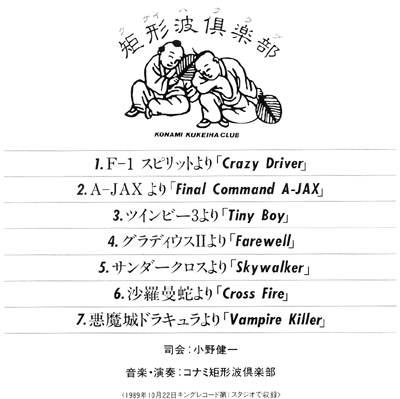 クケイハクラブ
矩形波倶楽部
KONAMI KUKEIHA CLUB
1. F-1 スピリットより「Crazy Driver」
2. A-JAX より「Final Command A-JAX」
3. ツインビー3より「Tiny Boy」
4. グラディウスIIより「Farewell」
5. サンダークロスより「Skywalker」
6. 沙羅曼蛇より「Cross Fire」
7. 悪魔城ドラキュラより「Vampire Killer」
司会：小野健一
音楽・演奏：コナミ矩形波倶楽部
〈1989年10月22日キングレコード第1スタジオで収録〉